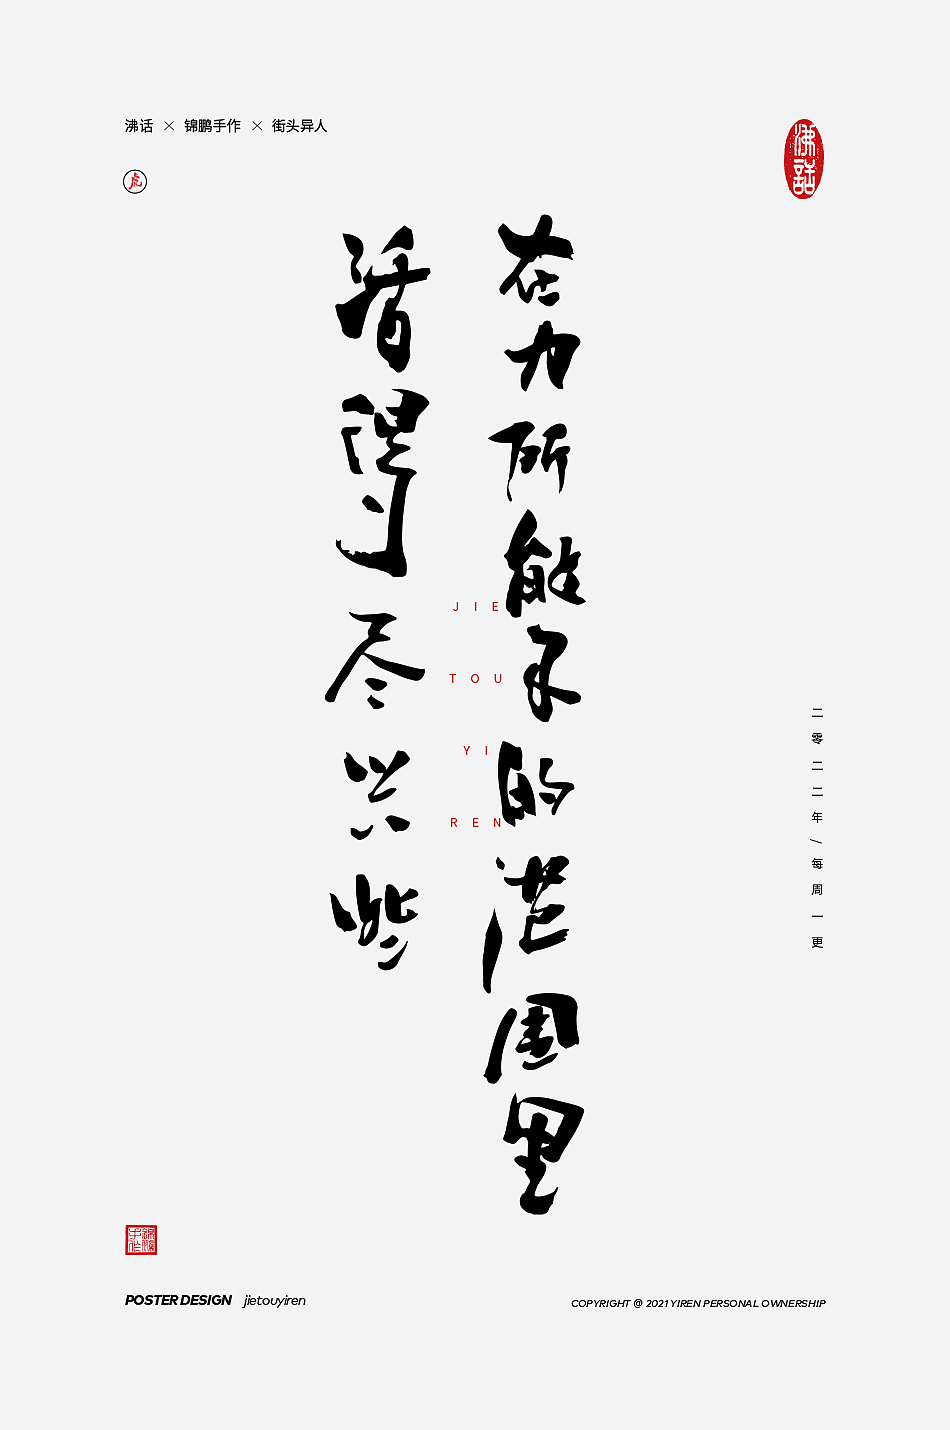 沸话 × 锦鹏手作 × 街头异人
虎
沸話
在力所能及的范围里
活得尽兴些
JIE
TOU
YI
REN
二零二二年/每周一更
POSTER DESIGN jietouyiren
COPYRIGHT @ 2021 YIREN PERSONAL OWNERSHIP